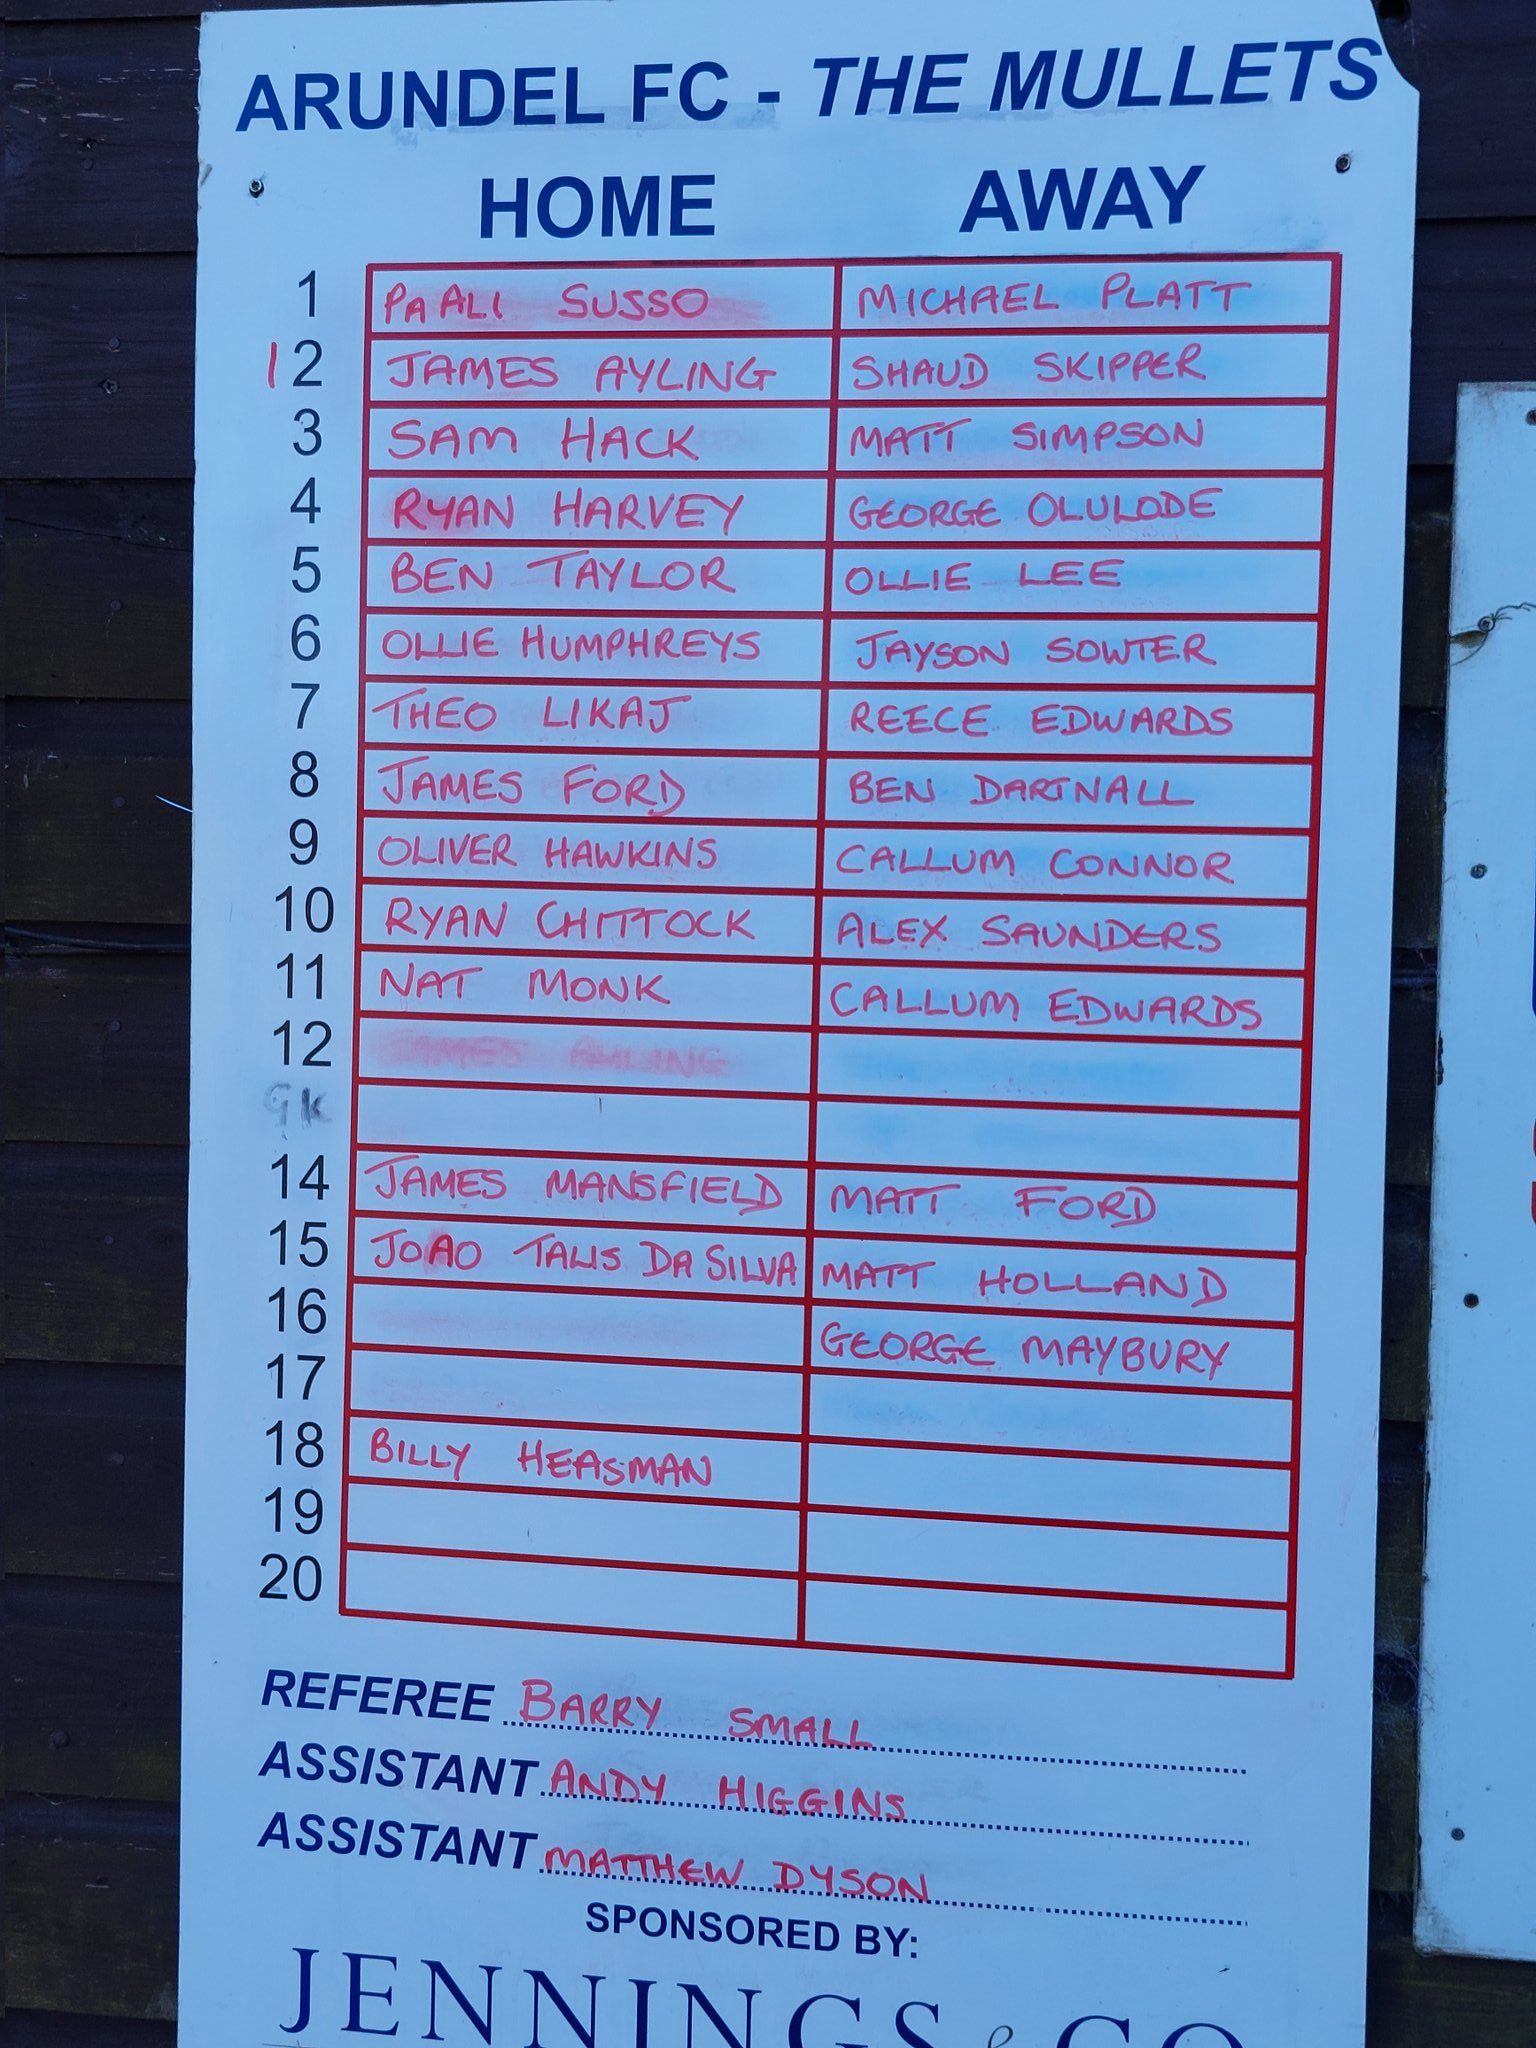 ARUNDEL FC - THE MULLETS
HOME AWAY
1 PA ALI SUSSO MICHAEL PLATT
12 JAMES AYLING SHAUD SKIPPER
3 SAM HACK MATT SIMPSON
4 RYAN HARVEY GEORGE OLULODE
5 BEN TAYLOR OLLIE LEE
6 OLLIE HUMPHREYS JAYSON SOWTER
7 THEO LIKAJ REECE EDWARDS
8 JAMES FORD BEN DARTNALL
9 OLIVER HAWKINS CALLUM CONNOR
10 RYAN CHITTOCK ALEX SAUNDERS
11 NAT MONK CALLUM EDWARDS
12 JAMES AYLING
GK
14 JAMES MANSFIELD MATT FORD
15 JOAO TALIS DA SILVA MATT HOLLAND
16 GEORGE MAYBURY
17
18 BILLY HEASMAN
19
20
REFEREE BARRY SMALL
ASSISTANT ANDY HIGGINS
ASSISTANT MATTHEW DYSON
SPONSORED BY:
JENNINGS & CO